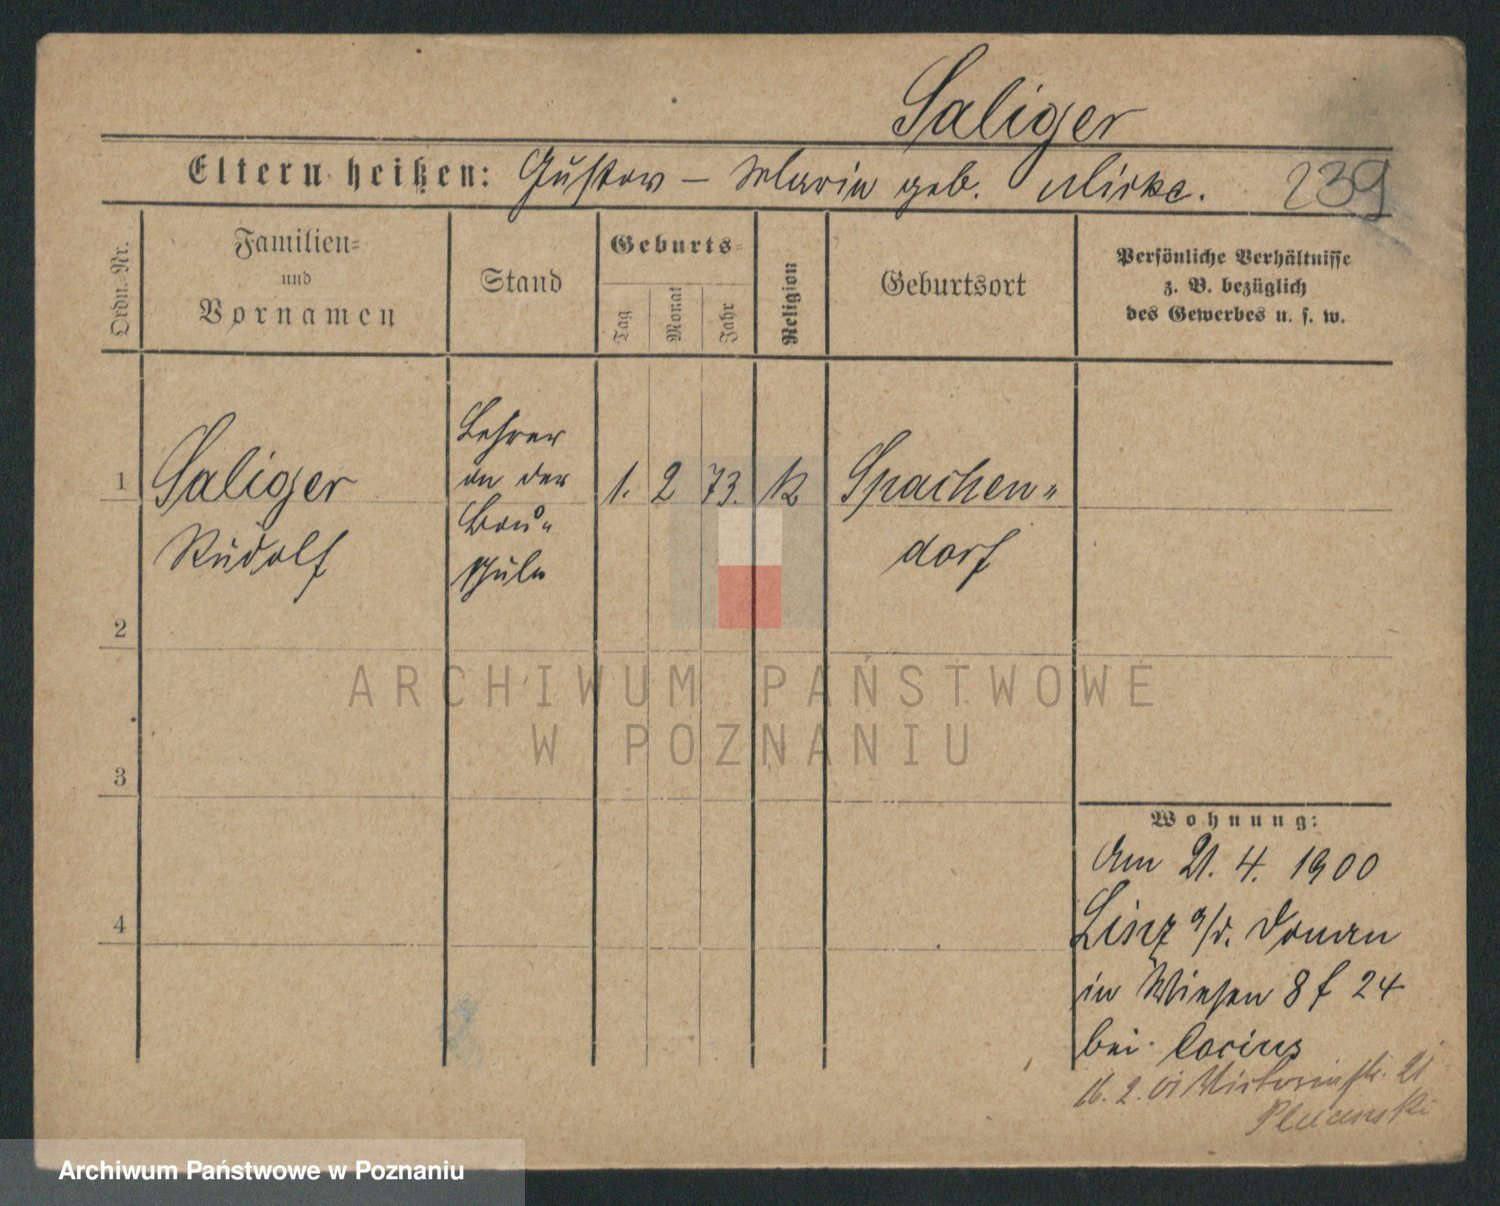 Saliger
Eltern heißen: Gustav – Maria geb. Mirke.
239
Ordn.-Nr.
Familien-
und
Vornamen
Stand
Geburts-
Tag
Monat
Jahr
Religion
Geburtsort
Persönliche Verhältnisse
z. B. bezüglich
des Gewerbes u. s. w.
1
Saliger
Rudolf
Lehrer
an der
Bau-
schule
1. 2 73. k
Spachen-
dorf
2
3
4
Wohnung:
Am 21. 4. 1900
Linz a/d. Donau
in Wiesen 8 f 24
bei
16. 2. 01 Victoriastr. 21
Plucinski
ARCHIWUM PAŃSTWOWE
W POZNANIU
Archiwum Państwowe w Poznaniu